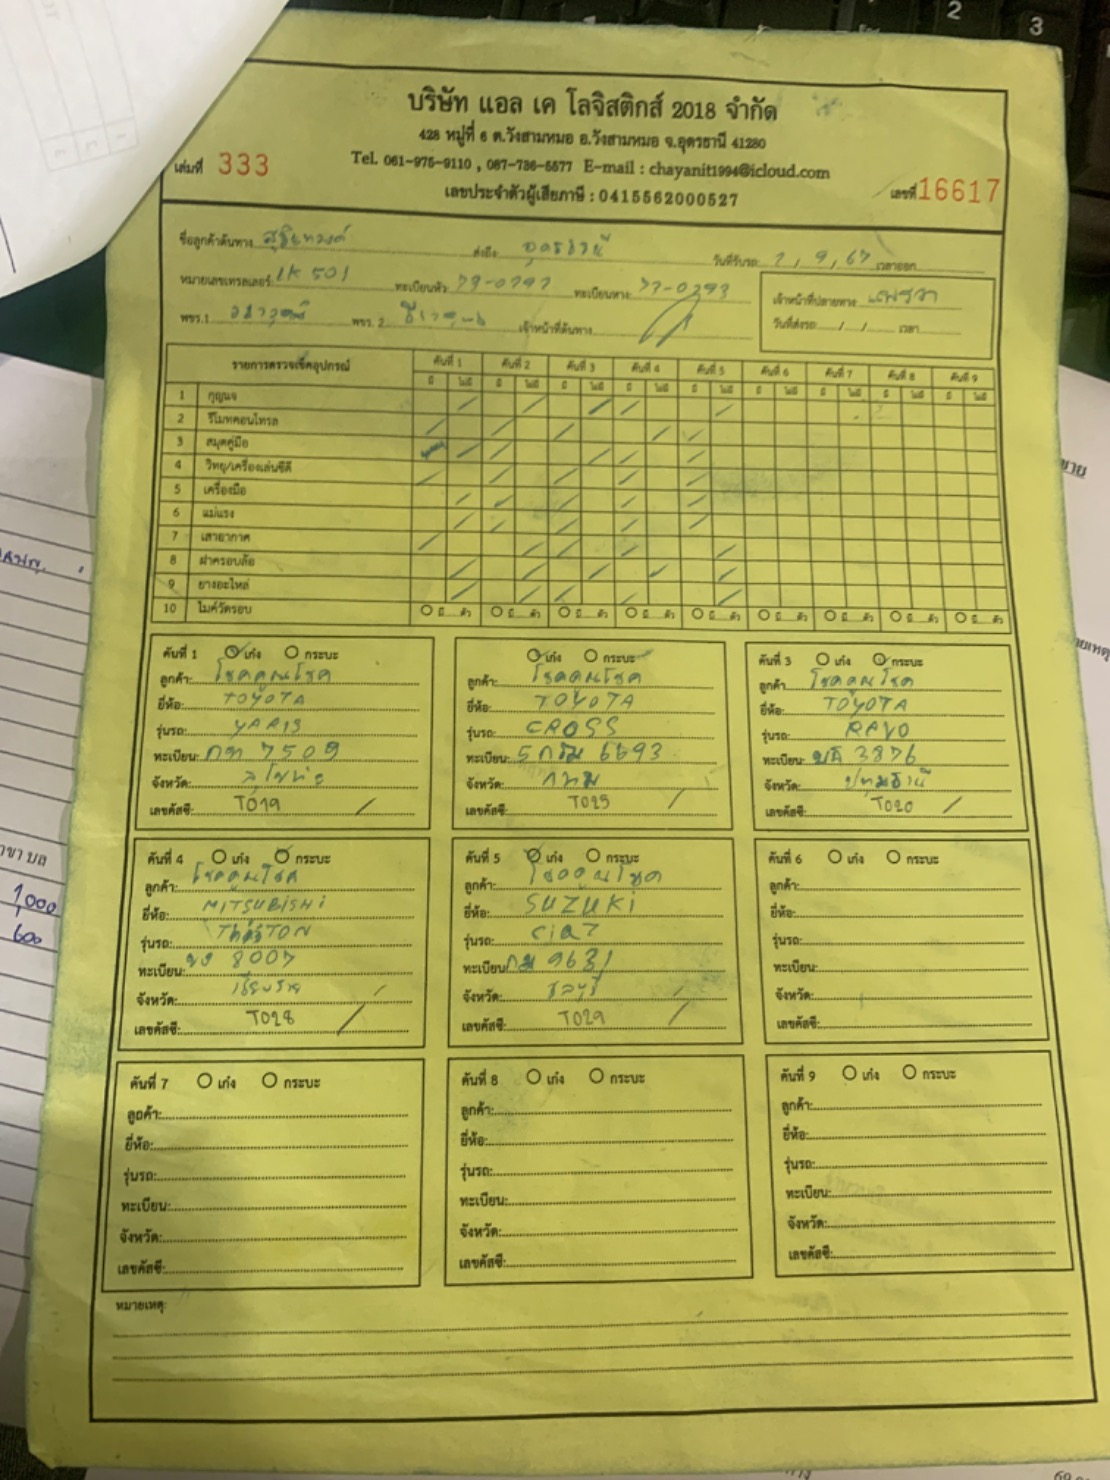 2
3
บริษัท แอล เค โลจิสติกส์ 2018 จำกัด
428 หมู่ที่ 6 ต.วังสามหมอ อ.วังสามหมอ จ.อุดรธานี 41280
Tel. 061-975-9110 , 087-736-5577 E-mail : chayanit1994@icloud.com
เล่มที่ 333
เลขประจำตัวผู้เสียภาษี : 0415562000527
เลขที่ 16617
ชื่อลูกค้าต้นทาง ส่งถึง อุดรธานี วันที่รับรถ 7 / 9 / 67 เวลาออก
หมายเลขเทรลเลอร์ LK 501 ทะเบียนหัว ทะเบียนหาง เจ้าหน้าที่ปลายทาง
พขร.1 พขร. 2 เจ้าหน้าที่ต้นทาง วันที่ส่งรถ / / เวลา
รายการตรวจเช็คอุปกรณ์ คันที่ 1 คันที่ 2 คันที่ 3 คันที่ 4 คันที่ 5 คันที่ 6 คันที่ 7 คันที่ 8 คันที่ 9
มี ไม่มี มี ไม่มี มี ไม่มี มี ไม่มี มี ไม่มี มี ไม่มี มี ไม่มี มี ไม่มี มี ไม่มี
1 กุญแจ
2 รีโมทคอนโทรล
3 สมุดคู่มือ
4 วิทยุ/เครื่องเล่นซีดี
5 เครื่องมือ
6 แม่แรง
7 เสาอากาศ
8 ฝาครอบล้อ
9 ยางอะไหล่
10 ไมค์วัดรอบ มี ตัว มี ตัว มี ตัว มี ตัว มี ตัว มี ตัว มี ตัว มี ตัว มี ตัว
คันที่ 1 เก๋ง กระบะ
ลูกค้า: โชคคูณโชค
ยี่ห้อ: TOYOTA
รุ่นรถ: YARIS
ทะเบียน: กท 7509
จังหวัด: สุโขทัย
เลขคัสซี: T019
เก๋ง กระบะ
ลูกค้า: โชคคูณโชค
ยี่ห้อ: TOYOTA
รุ่นรถ: CROSS
ทะเบียน: 6693
จังหวัด: กทม
เลขคัสซี: T025
คันที่ 3 เก๋ง กระบะ
ลูกค้า โชคคูณโชค
ยี่ห้อ: TOYOTA
รุ่นรถ: REVO
ทะเบียน: 3876
จังหวัด: ปทุมธานี
เลขคัสซี: T020
คันที่ 4 เก๋ง กระบะ
ลูกค้า: โชคคูณโชค
ยี่ห้อ: MITSUBISHI
รุ่นรถ:
ทะเบียน: 8007
จังหวัด: เชียงราย
เลขคัสซี: T028
คันที่ 5 เก๋ง กระบะ
ลูกค้า: โชคคูณโชค
ยี่ห้อ: SUZUKI
รุ่นรถ: CIAZ
ทะเบียน: กม 9631
จังหวัด: ชลบุรี
เลขคัสซี: T029
คันที่ 6 เก๋ง กระบะ
ลูกค้า:
ยี่ห้อ:
รุ่นรถ:
ทะเบียน:
จังหวัด:
เลขคัสซี:
คันที่ 7 เก๋ง กระบะ
ลูกค้า:
ยี่ห้อ:
รุ่นรถ:
ทะเบียน:
จังหวัด:
เลขคัสซี:
คันที่ 8 เก๋ง กระบะ
ลูกค้า:
ยี่ห้อ:
รุ่นรถ:
ทะเบียน:
จังหวัด:
เลขคัสซี:
คันที่ 9 เก๋ง กระบะ
ลูกค้า:
ยี่ห้อ:
รุ่นรถ:
ทะเบียน:
จังหวัด:
เลขคัสซี:
หมายเหตุ:
1,000
600